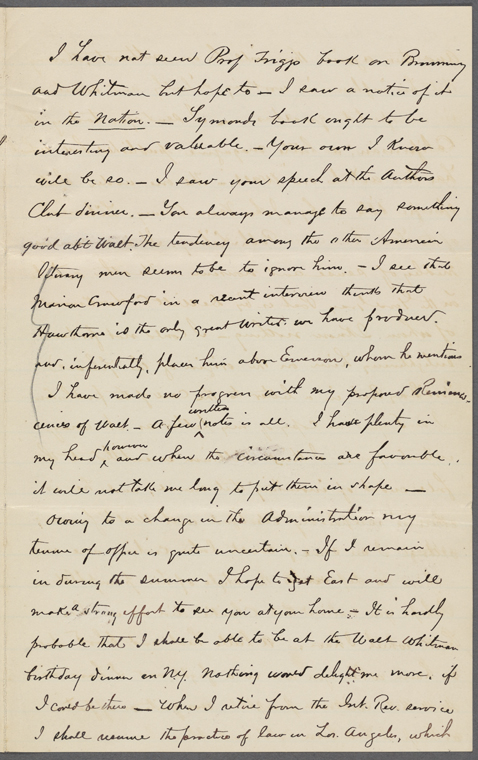 I have not seen Prof Triggs book on Browning
and Whitman but hope to — I saw a notice of it
in the Nation. — Symonds book ought to be
interesting and valuable. — Your own I know
will be so. — I saw your speech at the Authors
Club dinner. — You always manage to say something
good abt Walt. The tendency among the other American
literary men seems to be to ignore him. — I see that
Marion Crawford in a recent interview thinks that
Hawthorne is the only great writer we have produced.
and, inferentially, places him above Emerson, whom he mentions.
I have made no progress with my proposed Reminis-
cences of Walt. — A few written notes is all. I have plenty in
my head however and when the circumstances are favorable.
it will not take me long to put them in shape —
Owing to a change in the Administration my
tenure of office is quite uncertain. — If I remain
in during the summer I hope to get East and will
make a strong effort to see you at your home. — It is hardly
probable that I shall be able to be at the Walt Whitman
birthday dinner in NY. Nothing would delight me more, if
I could be there — When I retire from the Int. Rev. service
I shall resume the practice of law in Los Angeles, which